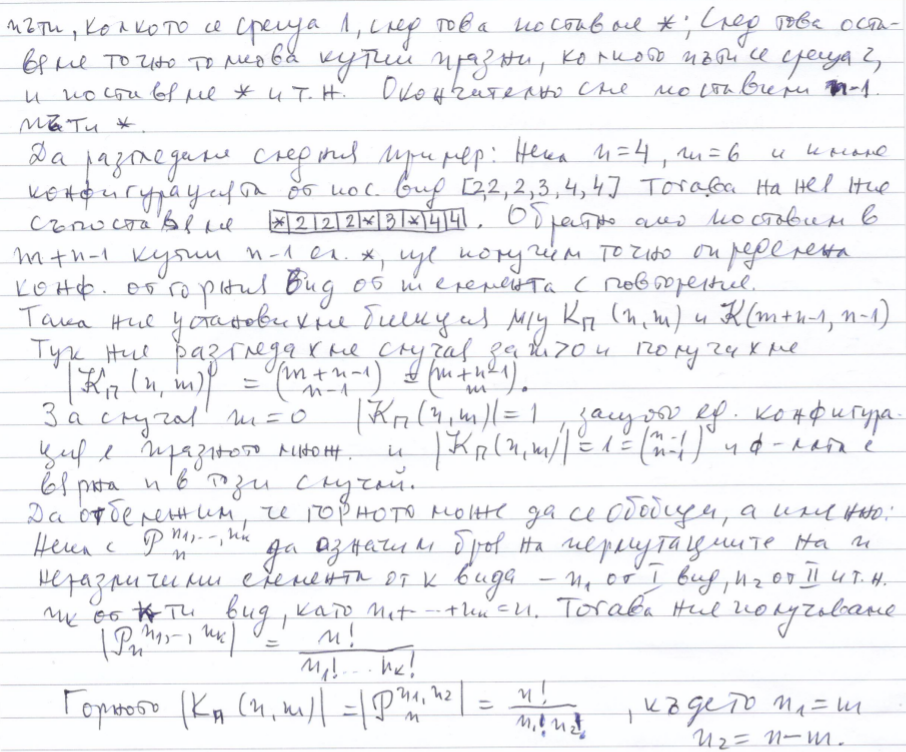 пъти, колкото се среща 1, след това поставяме *; След това оста-
вяме точно толкова кутии празни, колкото пъти се среща 2,
и поставяме * и т.н. Окончателно сме поставили n-1
пъти *.
Да разгледаме следния пример: Нека n=4, m=6 и имаме
конфигурацията от пос. вид [2,2,2,3,4,4] Тогава на нея ние
съпоставяме |*|2|2|2|*|3|*|4|4|. Обратно ако поставим в
m+n-1 кутии n-1 ел. *, ще получим точно определена
конф. от горния вид от m елемента с повторение.
Така ние установихме биекция м/у Kп (n,m) и K(m+n-1, n-1)
Тук ние разгледахме случая за m>0 и получихме
|Kп (n, m)| = (m+n-1 n-1) = (m+n-1 m).
За случая m=0 |Kп(n,m)|=1, защото ед. конфигура-
ция е празното множ. и |Kп(n,m)|=1=(n-1 n-1) и ф-лата е
вярна и в този случай.
Да отбележим, че горното може да се обобщи, а именно:
Нека с P_n^{n1,...,nk} да означим броя на пермутациите на n
неразличими елемента от k вида – n1 от I вид, n2 от II и т.н.
nk от k-ти вид, като n1+...+nk=n. Тогава ние получаваме
|P_n^{n1,...,nk}| = n! / (n1!...nk!)
Горното |Kп (n,m)| = |P_n^{n1,n2}| = n! / (n1! n2!), където n1=m
n2=n-m.